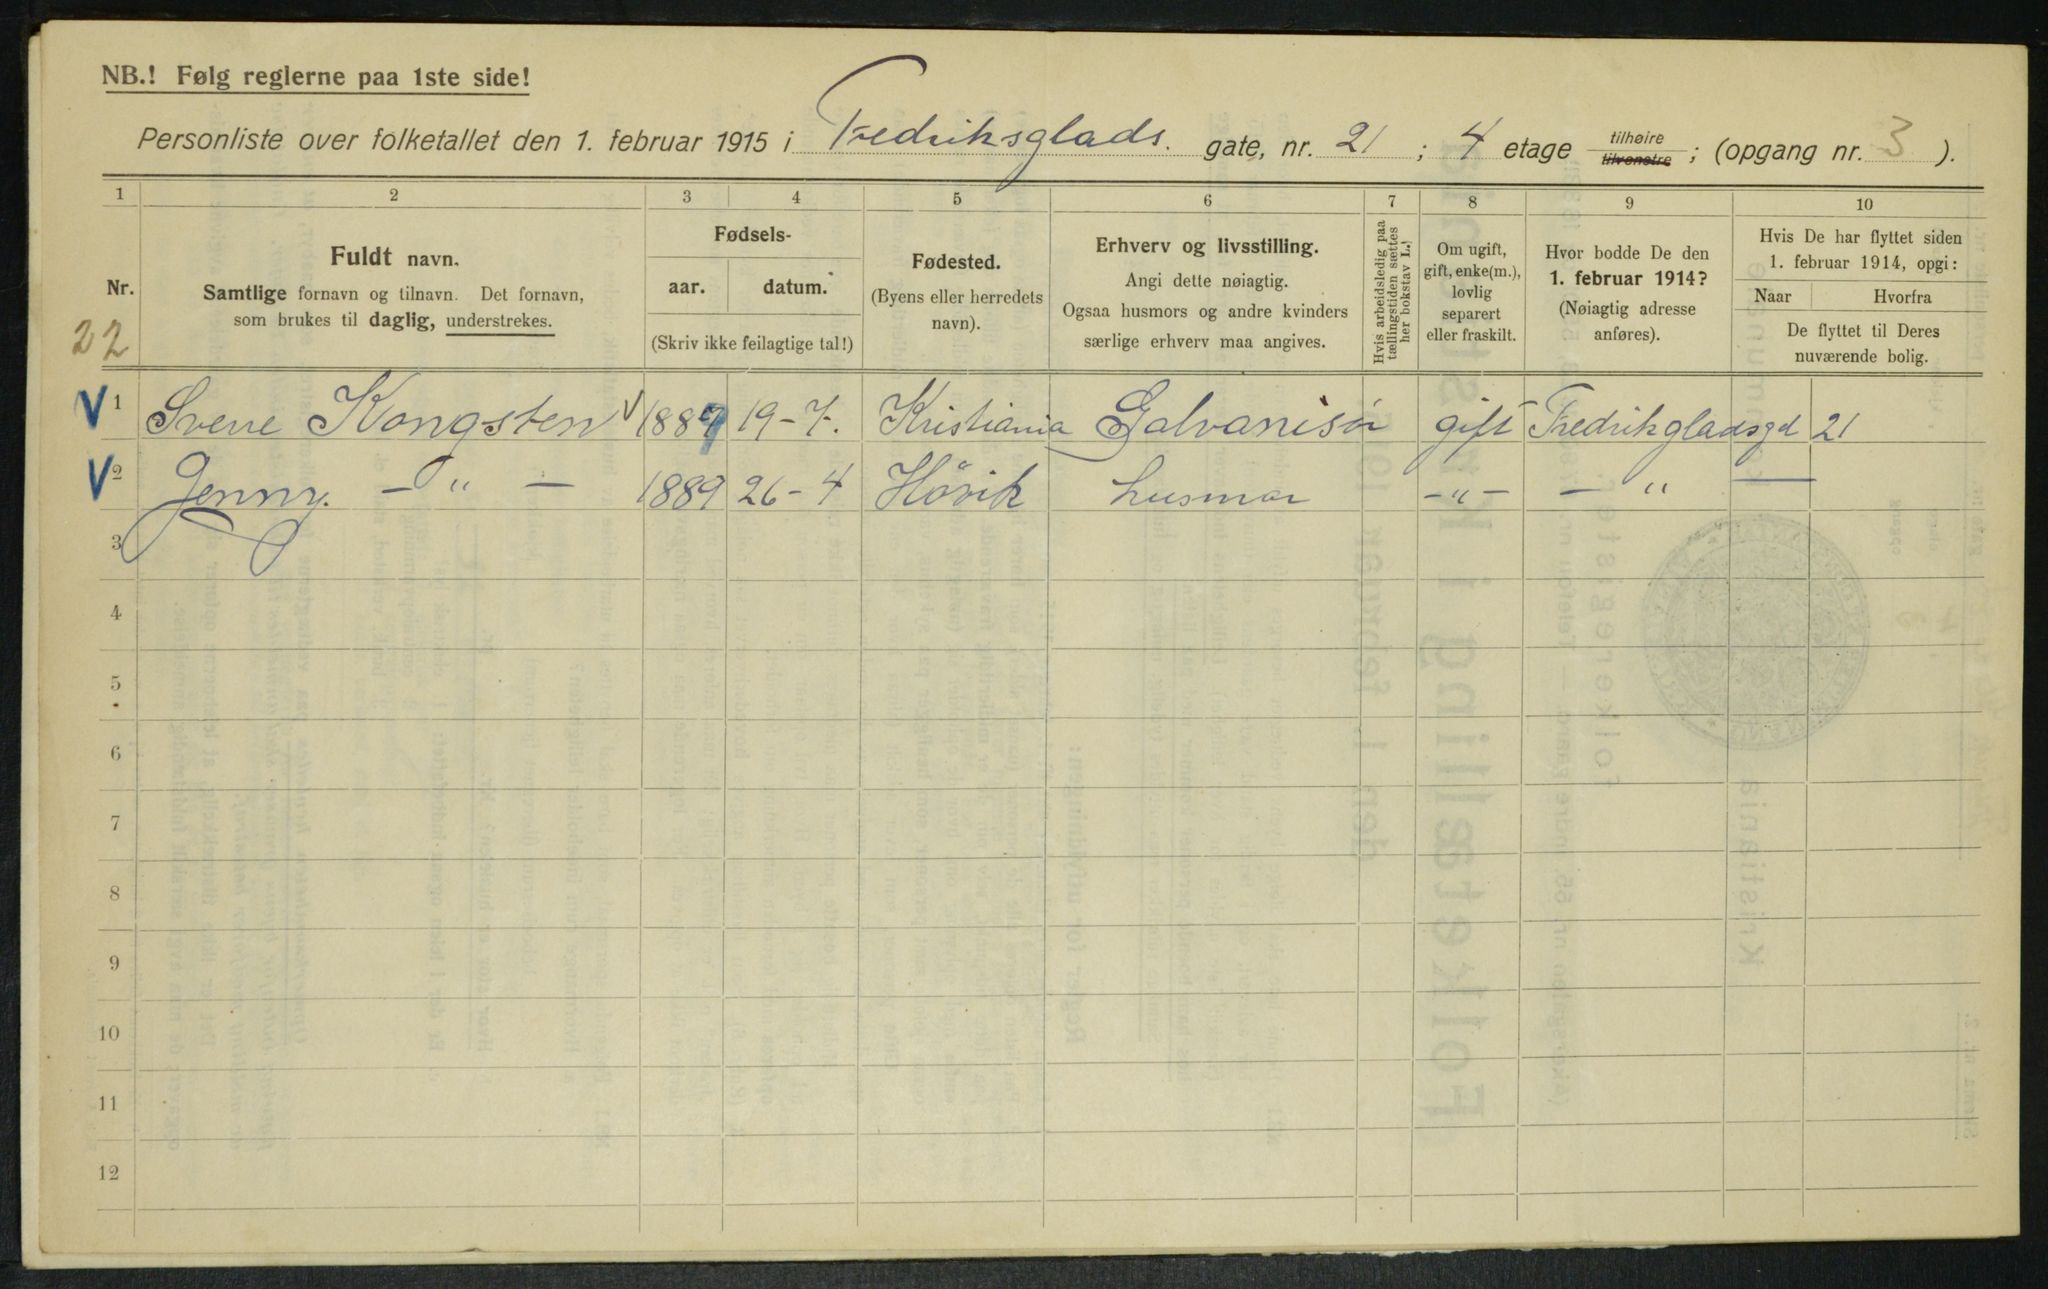 NB.! Følg reglerne paa 1ste side!
Personliste over folketallet den 1. februar 1915 i Fredriksglads. gate, nr. 21 ; 4 etage tilhøire tilvenstre ; (opgang nr. 3 ).
1 2 3 4 5 6 7 8 9 10
Nr.
22
Fuldt navn.
Samtlige fornavn og tilnavn. Det fornavn,
som brukes til daglig, understrekes.
Fødsels-
aar. datum.
(Skriv ikke feilagtige tal!)
Fødested.
(Byens eller herredets
navn).
Erhverv og livsstilling.
Angi dette nøiagtig.
Ogsaa husmors og andre kvinders
særlige erhverv maa angives.
Hvis arbeidsledig paa
tællingstiden sættes
her bokstav L.!
Om ugift,
gift, enke(m.),
lovlig
separert
eller fraskilt.
Hvor bodde De den
1. februar 1914?
(Nøiagtig adresse
anføres).
Hvis De har flyttet siden
1. februar 1914, opgi:
Naar Hvorfra
De flyttet til Deres
nuværende bolig.
V 1 Sverre Kongsten V 1887 19-7. Kristiania Galvanisør gift Fredrikgladsgd 21
V 2 Jenny. - " - 1889 26-4 Hövik husmor - " - - " -
3
4
5
6
7
8
9
10
11
12